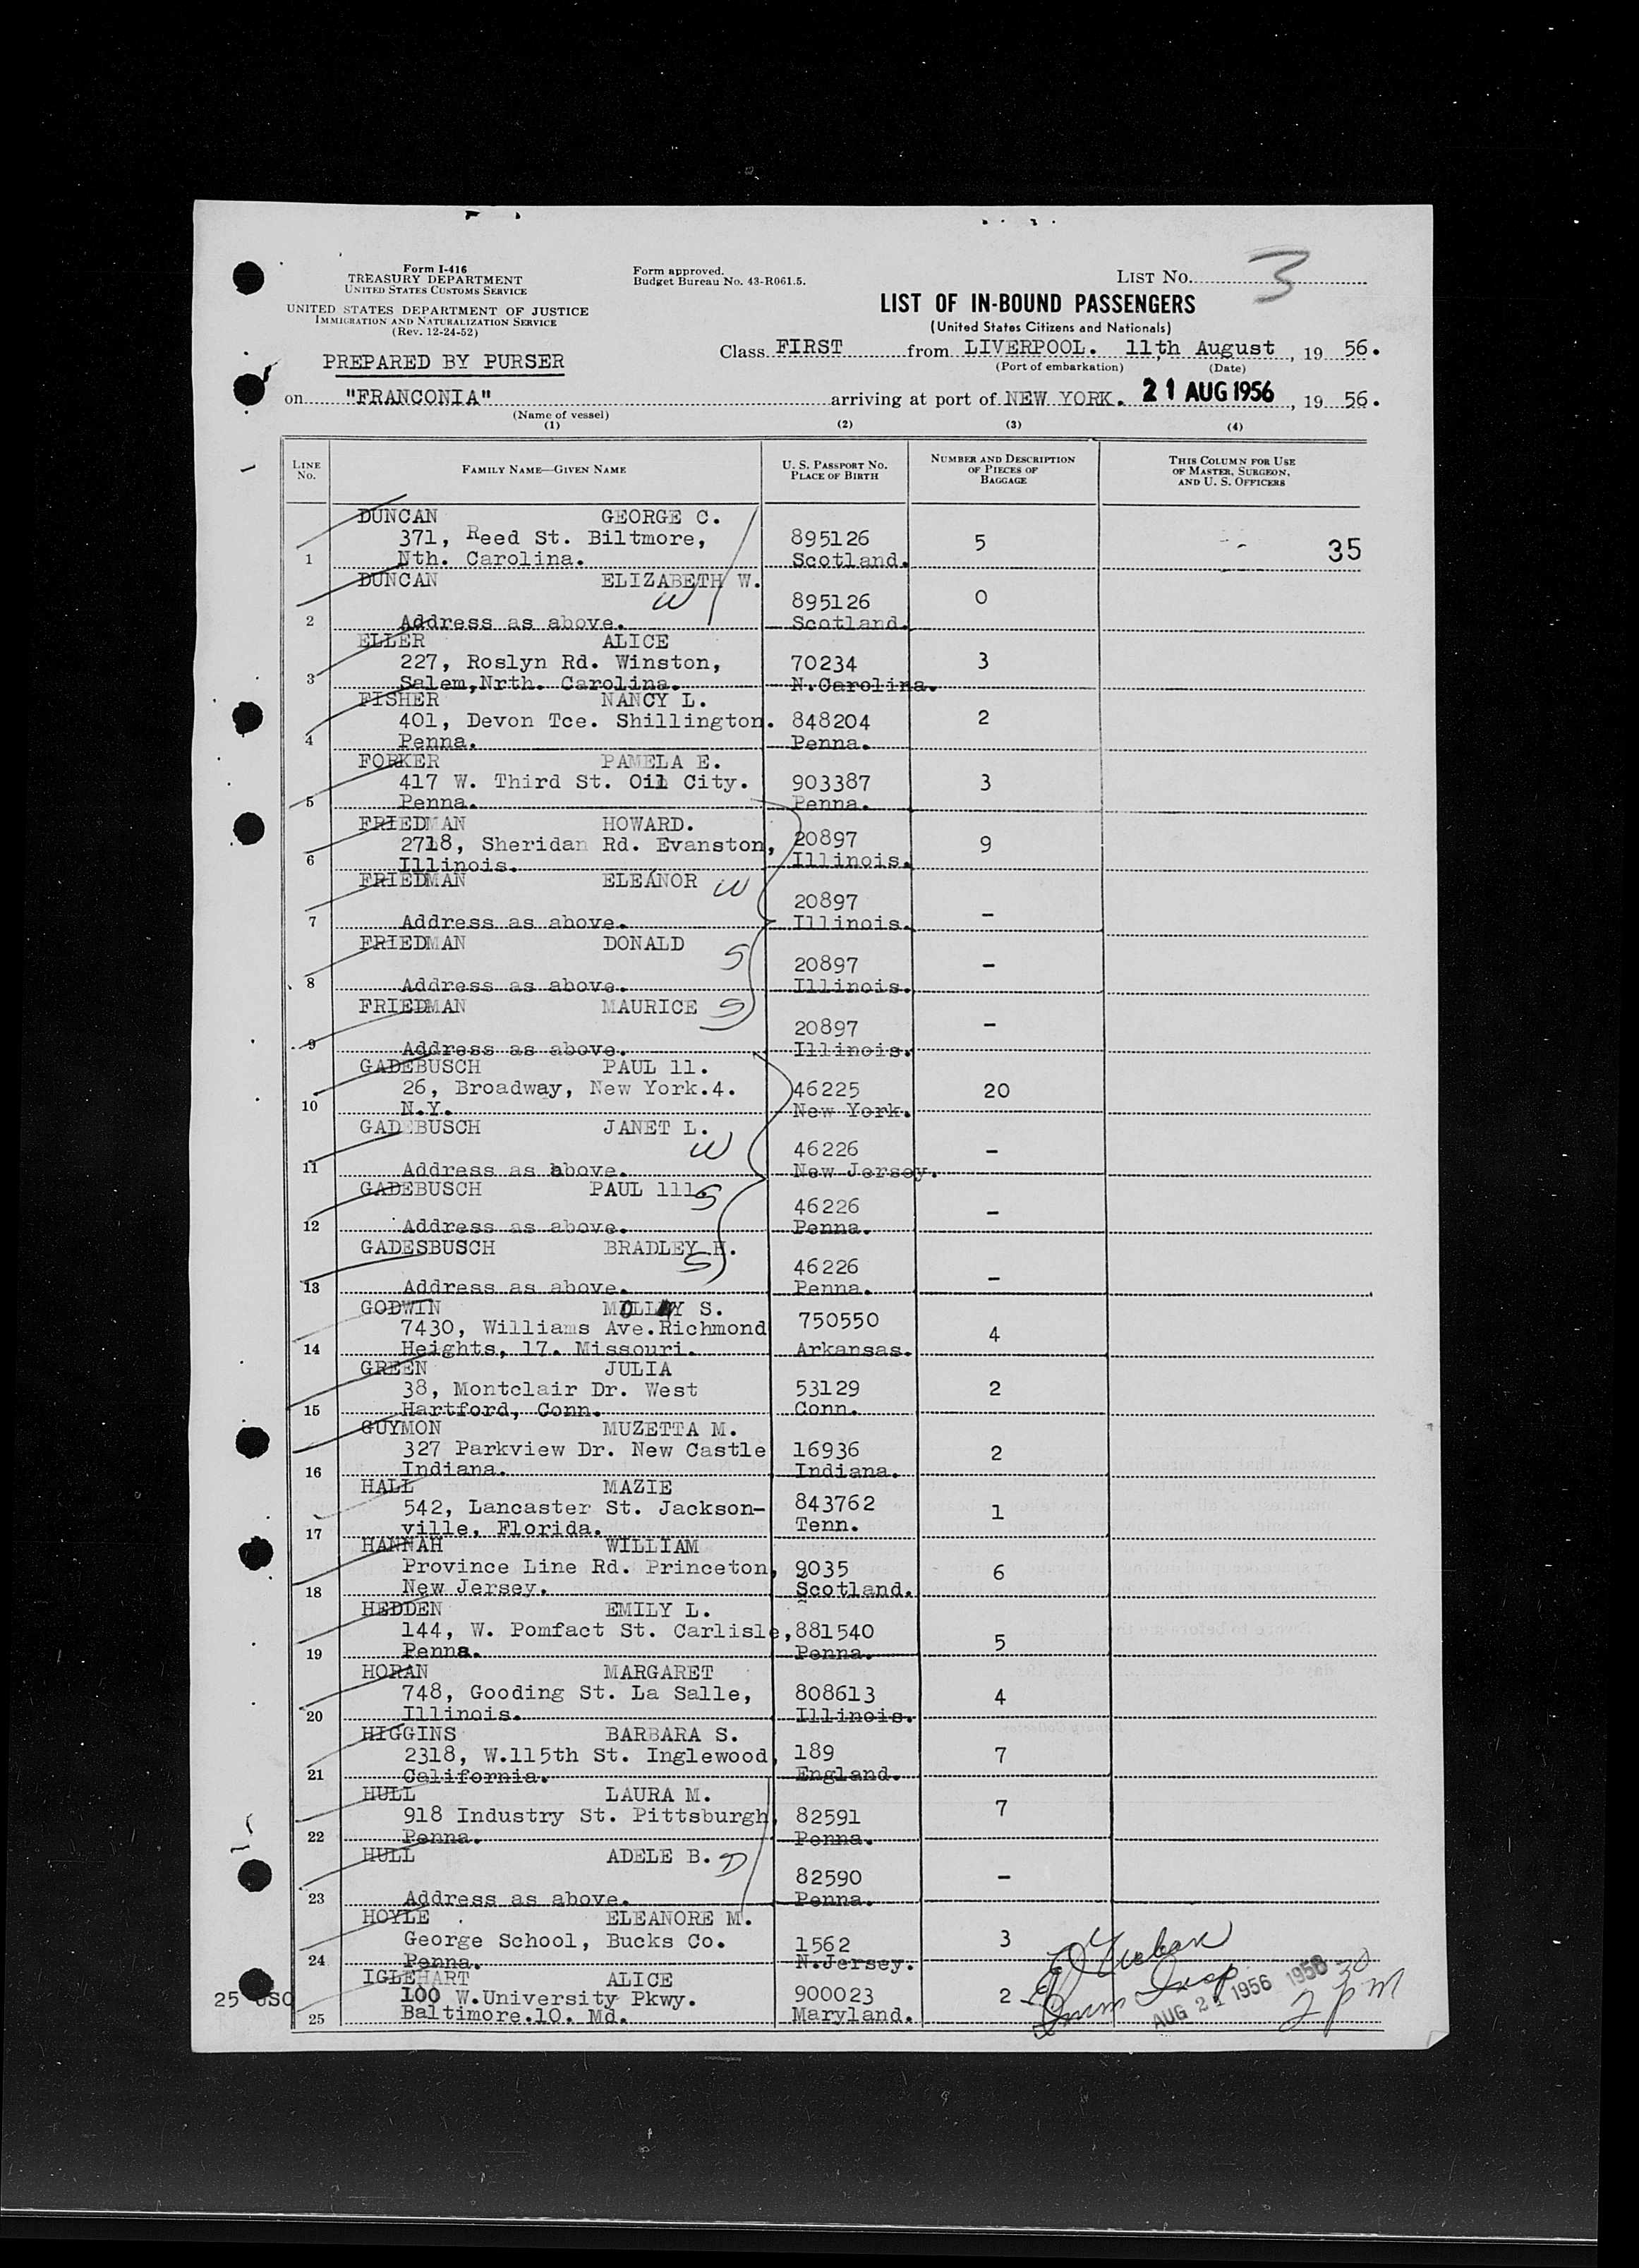 Form I-416
TREASURY DEPARTMENT
UNITED STATES CUSTOMS SERVICE
UNITED STATES DEPARTMENT OF JUSTICE
IMMIGRATION AND NATURALIZATION SERVICE
(Rev. 12-24-52)
PREPARED BY PURSER
Form approved.
Budget Bureau No. 43-R061.5.
LIST No. 3
LIST OF IN-BOUND PASSENGERS
(United States Citizens and Nationals)
Class FIRST from LIVERPOOL. 11th August, 19 56.
(Port of embarkation) (Date)
on "FRANCONIA" arriving at port of NEW YORK. 21 AUG 1956, 19 56.
(Name of vessel)
(1) (2) (3) (4)
LINE No. FAMILY NAME—GIVEN NAME U. S. PASSPORT No. PLACE OF BIRTH NUMBER AND DESCRIPTION OF PIECES OF BAGGAGE THIS COLUMN FOR USE OF MASTER, SURGEON, AND U. S. OFFICERS
DUNCAN GEORGE C.
371, Reed St. Biltmore, 895126 5 35
1 Nth. Carolina. Scotland.
DUNCAN ELIZABETH W.
W 895126 0
2 Address as above. Scotland.
ELLER ALICE
227, Roslyn Rd. Winston, 70234 3
3 Salem,Nrth. Carolina. N.Carolina.
FISHER NANCY L.
401, Devon Tce. Shillington. 848204 2
4 Penna. Penna.
FORKER PAMELA E.
417 W. Third St. Oil City. 903387 3
5 Penna. Penna.
FRIEDMAN HOWARD.
2718, Sheridan Rd. Evanston, 20897 9
6 Illinois. Illinois.
FRIEDMAN ELEANOR W
20897 -
7 Address as above. Illinois.
FRIEDMAN DONALD
S 20897 -
8 Address as above. Illinois.
FRIEDMAN MAURICE S
20897 -
9 Address as above. Illinois.
GADEBUSCH PAUL 11.
26, Broadway, New York.4. 46225 20
10 N.Y. New York.
GADEBUSCH JANET L.
W 46226 -
11 Address as above. New Jersey.
GADEBUSCH PAUL 111. S
46226 -
12 Address as above. Penna.
GADESBUSCH BRADLEY H.
S 46226 -
13 Address as above. Penna.
GODWIN MOLLY S.
7430, Williams Ave.Richmond 750550 4
14 Heights, 17. Missouri. Arkansas.
GREEN JULIA
38, Montclair Dr. West 53129 2
15 Hartford, Conn. Conn.
GUYMON MUZETTA M.
327 Parkview Dr. New Castle 16936 2
16 Indiana. Indiana.
HALL MAZIE
542, Lancaster St. Jackson- 843762 1
17 ville, Florida. Tenn.
HANNAH WILLIAM
Province Line Rd. Princeton, 9035 6
18 New Jersey. Scotland.
HEDDEN EMILY L.
144, W. Pomfact St. Carlisle, 881540 5
19 Penna. Penna.
HORAN MARGARET
748, Gooding St. La Salle, 808613 4
20 Illinois. Illinois.
HIGGINS BARBARA S.
2318, W.115th St. Inglewood, 189 7
21 California. England.
HULL LAURA M.
918 Industry St. Pittsburgh, 82591 7
22 Penna. Penna.
HULL ADELE B. D
82590 -
23 Address as above. Penna.
HOYLE ELEANORE M.
George School, Bucks Co. 1562 3
24 Penna. N.Jersey.
IGLEHART ALICE
25 USC 100 W.University Pkwy. 900023 2
25 Baltimore.10. Md. Maryland.
Imm Insp
AUG 21 1956
2 30 PM